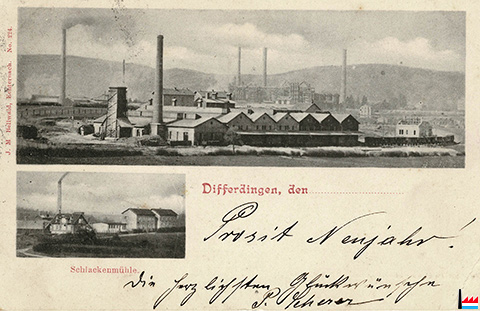 J. M. Bellwald, Echternach. No. 174.
Differdingen, den
Prosit Neujahr!
Schlackenmühle.
Die herzlichsten Glückwünsche
P. Scherer